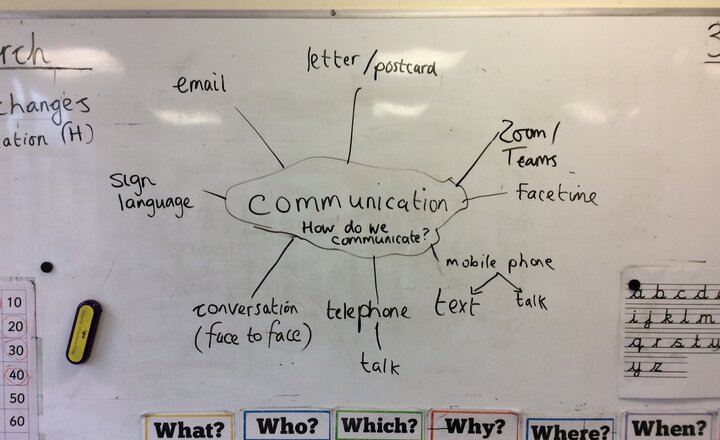 rch
changes
ation (H)
3
email
letter/postcard
Zoom/
Teams
Facetime
sign
language
Communication
How do we
communicate?
mobile phone
text
talk
conversation
(face to face)
telephone
talk
10
20
30
40
50
60
a b c d e
i j k l m
q r s t u
y z
What?
Who?
Which?
Why?
Where?
When?